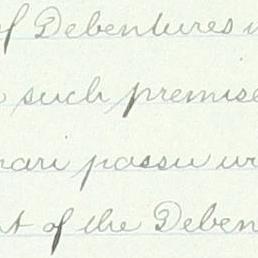 of Debentures
such premise
pari passu
of the Deben